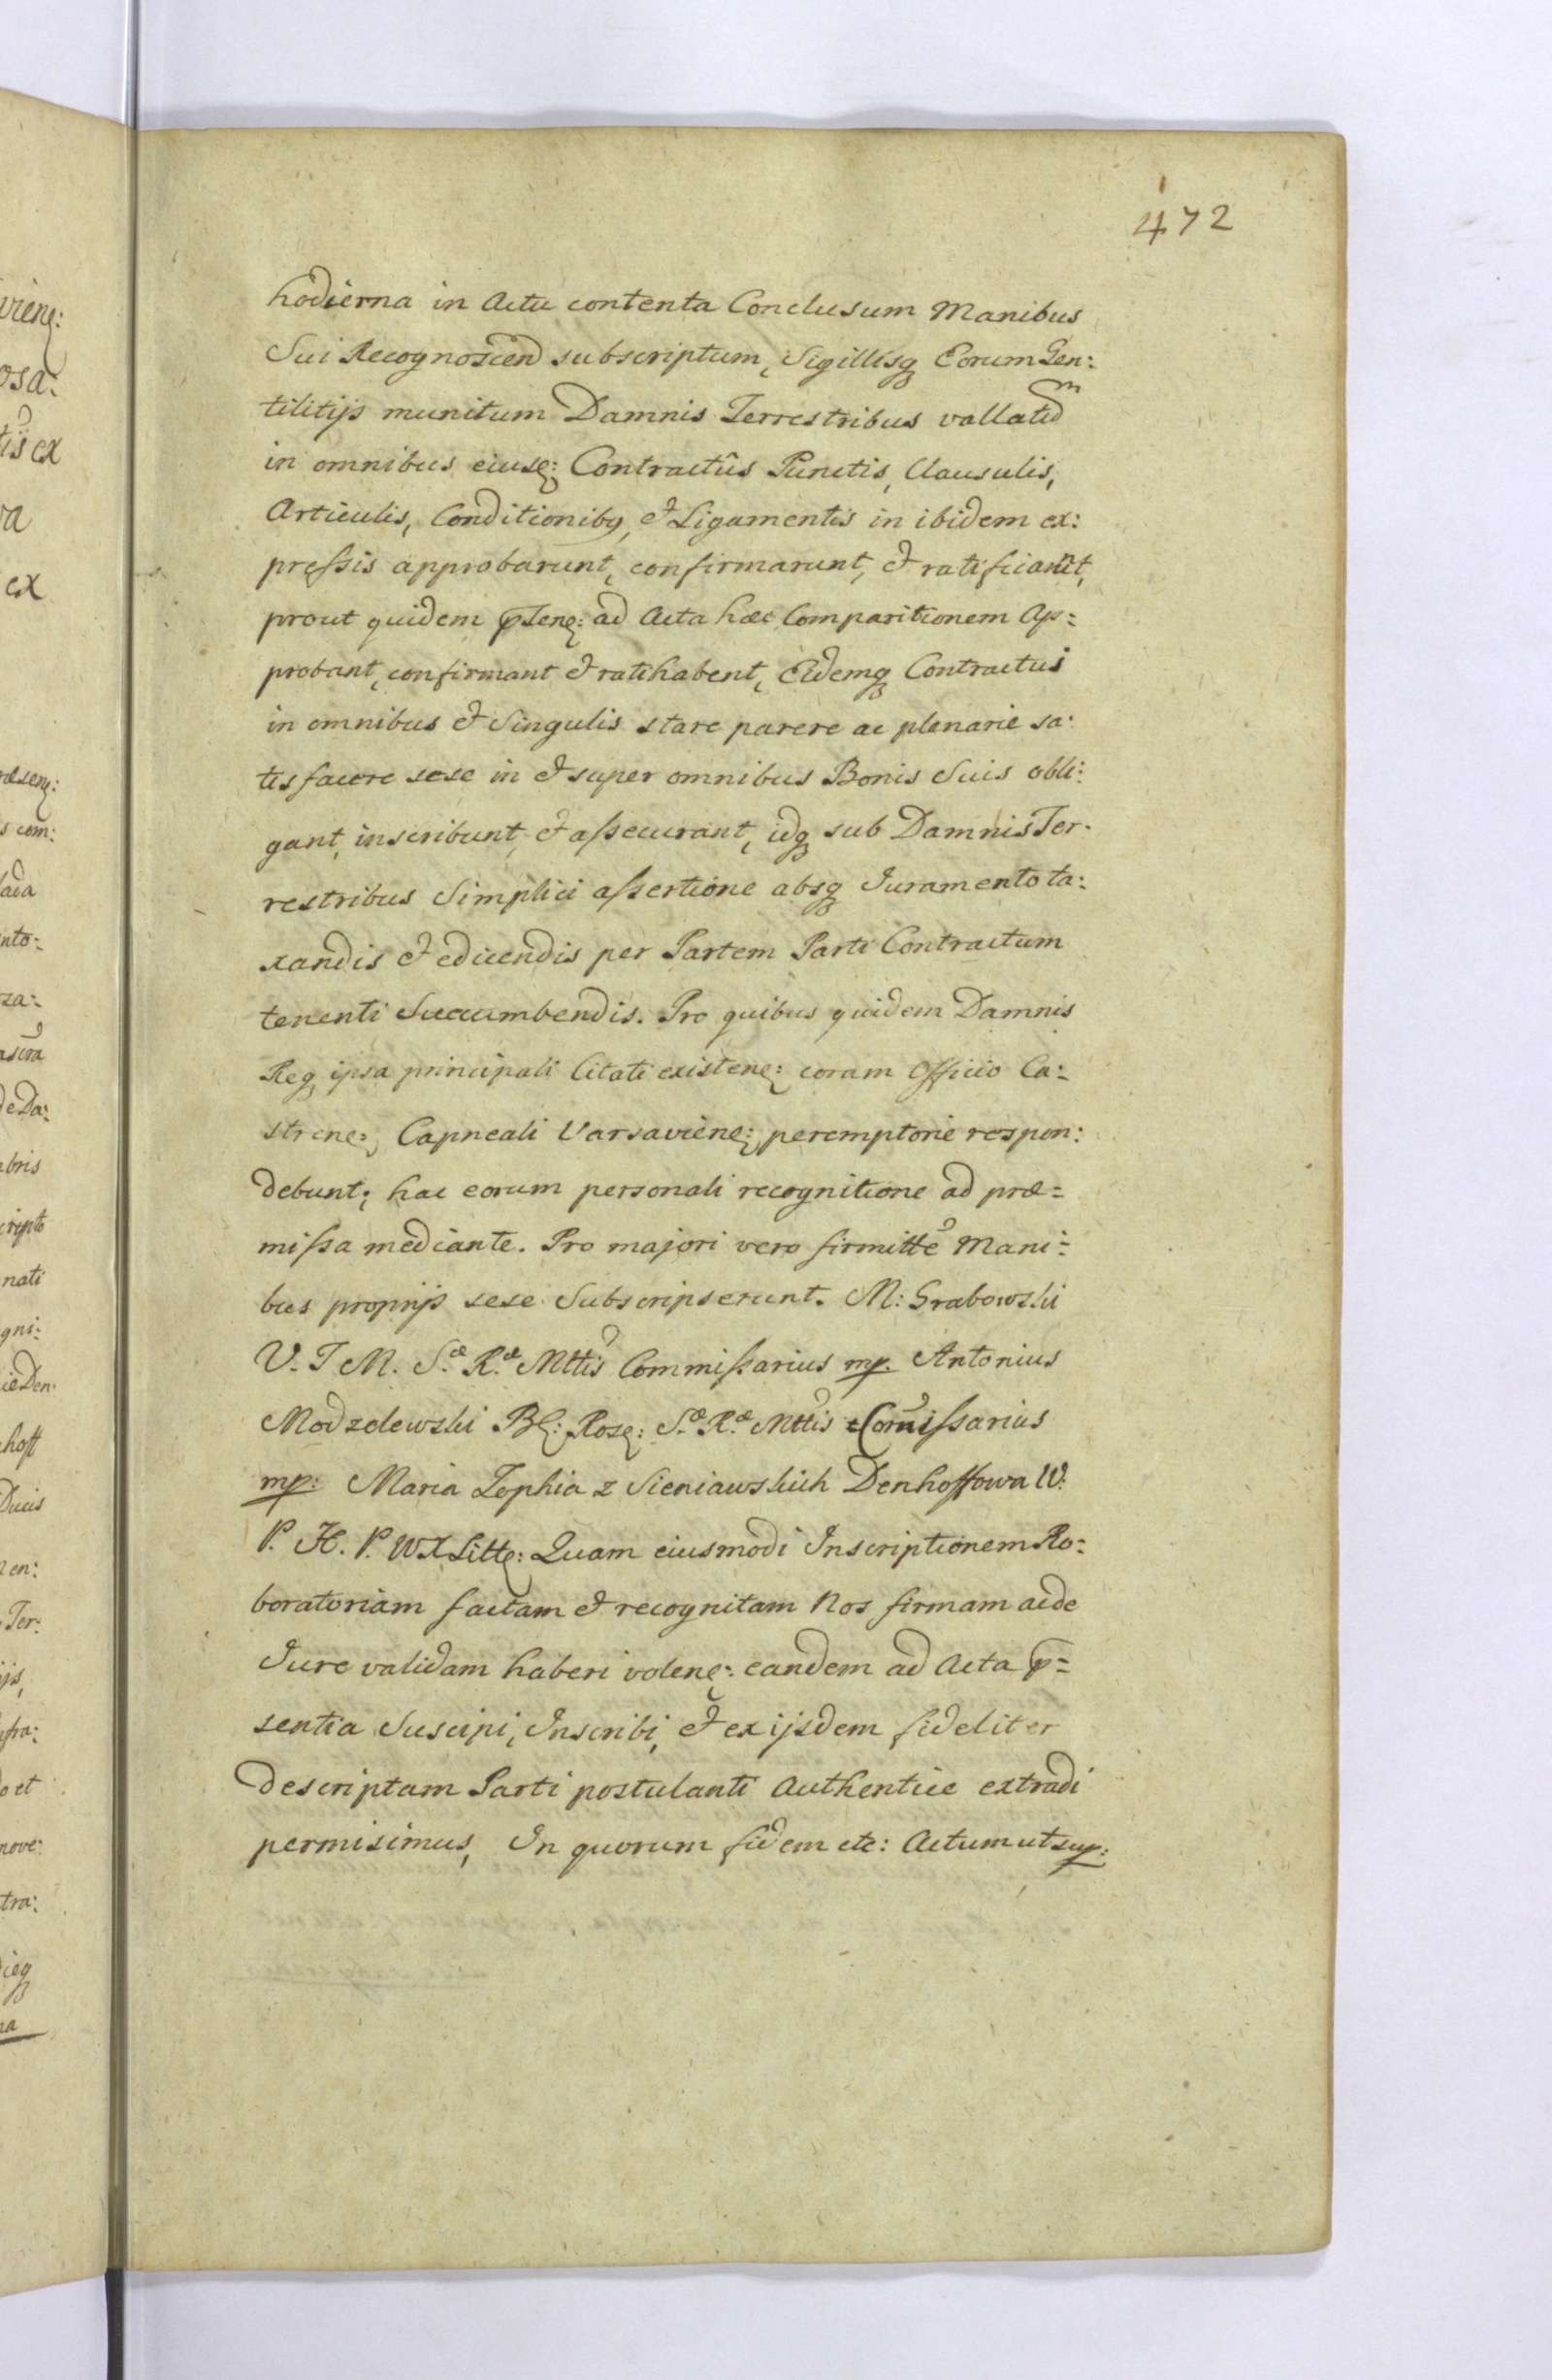 472
hodierna in Actu contenta Conclusum Manibus
Sui Recognoscen͠d subscriptum, Sigillisq́ Eorum Gen:
tilitijs munitum Damnis Terrestribus vallatu͠m
in omnibus eiusę: Contractûs Punctis, Clausulis,
Articulis, Conditionibq, et Ligamentis in ibidem ex:
preſsis approbarunt, confirmarunt, et ratificiarūt,
prout quidem ꝑsenę: ad Acta hæc Comparitionem Ap:
probant, confirmant et ratihabent, Eidemq́ Contractui
in omnibus et Singulis stare parere ac plenarie sa:
tisfacere sese in et super omnibus Bonis Suis obli:
gant, inscribunt, et aſsecurant, idq́ sub Damnis Ter:
restribus Simplici aſsertione absq́ Juramento ta:
xandis et edicendis per Partem Parti Contractum
tenenti Succumbendis. Pro quibus quidem Damnis
Req́ ipsa principali Citati existenę: coram Officio Ca:
strenę: Capneali Varsavienę: peremptorie respon:
debunt; hac eorum personali recognitione ad præ=
miſsa mediante. Pro majori vero firmitte͠ Mani:
bus proprijs sese Subscripserunt. M: Grabowski
V. T M. S.æ R.æ Mttis Commiſsarius mp. Antonius
Modzelewski Bę: Rosę: S.æ R.æ Mttis Com̃iſsarius
mp: Maria Zophia z Sieniawskich Denhoffowa W.
P. H. P. WXLittę: Quam eiusmodi Inscriptionem Ro:
boratoriam factam et recognitam Nos firmam acde
Jure validam haberi volenę: eandem ad Acta p̄=
sentia Suscipi, Inscribi, et ex ijsdem fideliter
descriptam Parti postulanti Authentice extradi
permisimus, In quorum fidem etc: Actum ut sup: